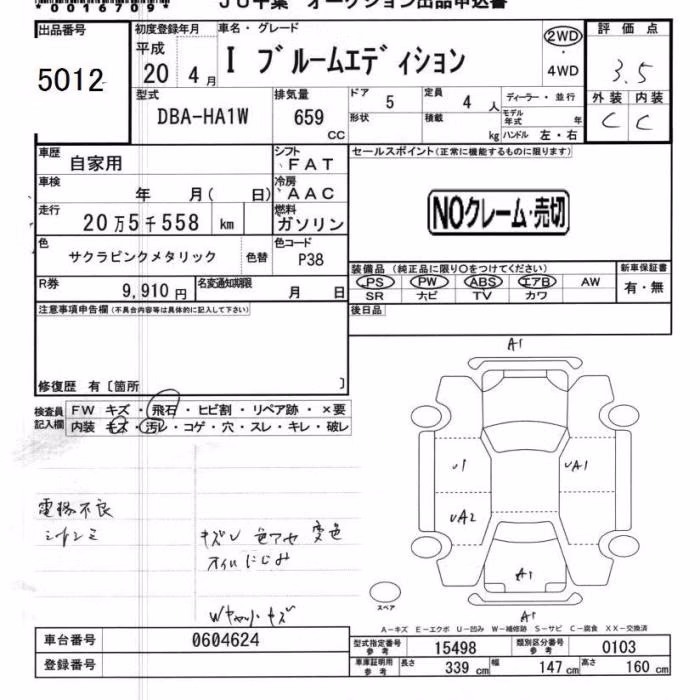 *0016709*
JU千葉 オークション出品申込書
出品番号
5012
初度登録年月
平成
20 4月
車名・グレード
I ブルームエディション
2WD
・
4WD
評価点
3.5
外装 内装
C C
型式
DBA-HA1W
排気量
659
CC
ドア 5
定員 4 人
形状
積載 kg
ディーラー・並行
モデル年式 年
ハンドル 左・右
車歴
自家用
シフト
FAT
車検
年 月( 日)
冷房
AAC
走行
20万5千558 km
燃料
ガソリン
色
サクラピンクメタリック
色替
色コード
P38
R券
9,910円
名変通知期限
月 日
セールスポイント(正常に機能するものに限ります)
NOクレーム・売切
装備品(純正品に限り○をつけてください)
PS PW ABS エアB AW
SR ナビ TV カワ
新車保証書
有・無
後日品
注意事項申告欄(不具合内容等は具体的に記入して下さい)
修復歴 有〔箇所 〕
検査員
記入欄
FW キズ・飛石・ヒビ割・リペア跡・×要
内装 キズ・汚レ・コゲ・穴・スレ・キレ・破レ
キズU 色アセ 変色
オイルにじみ
A1
U1
UA1
UA2
A1
A1
スペア
A−キズ E−エクボ U−凹み W−補修跡 S−サビ C−腐食 XX−交換済
車台番号
0604624
登録番号
型式指定番号
参考
15498
類別区分番号
参考
0103
車庫証明用
参考
長さ 339 cm
幅 147 cm
高さ 160 cm